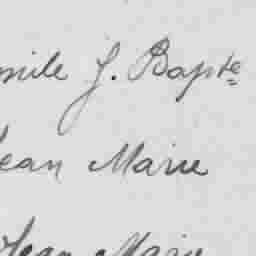 mile J. Bapte
Jean Marie
Jean Marie